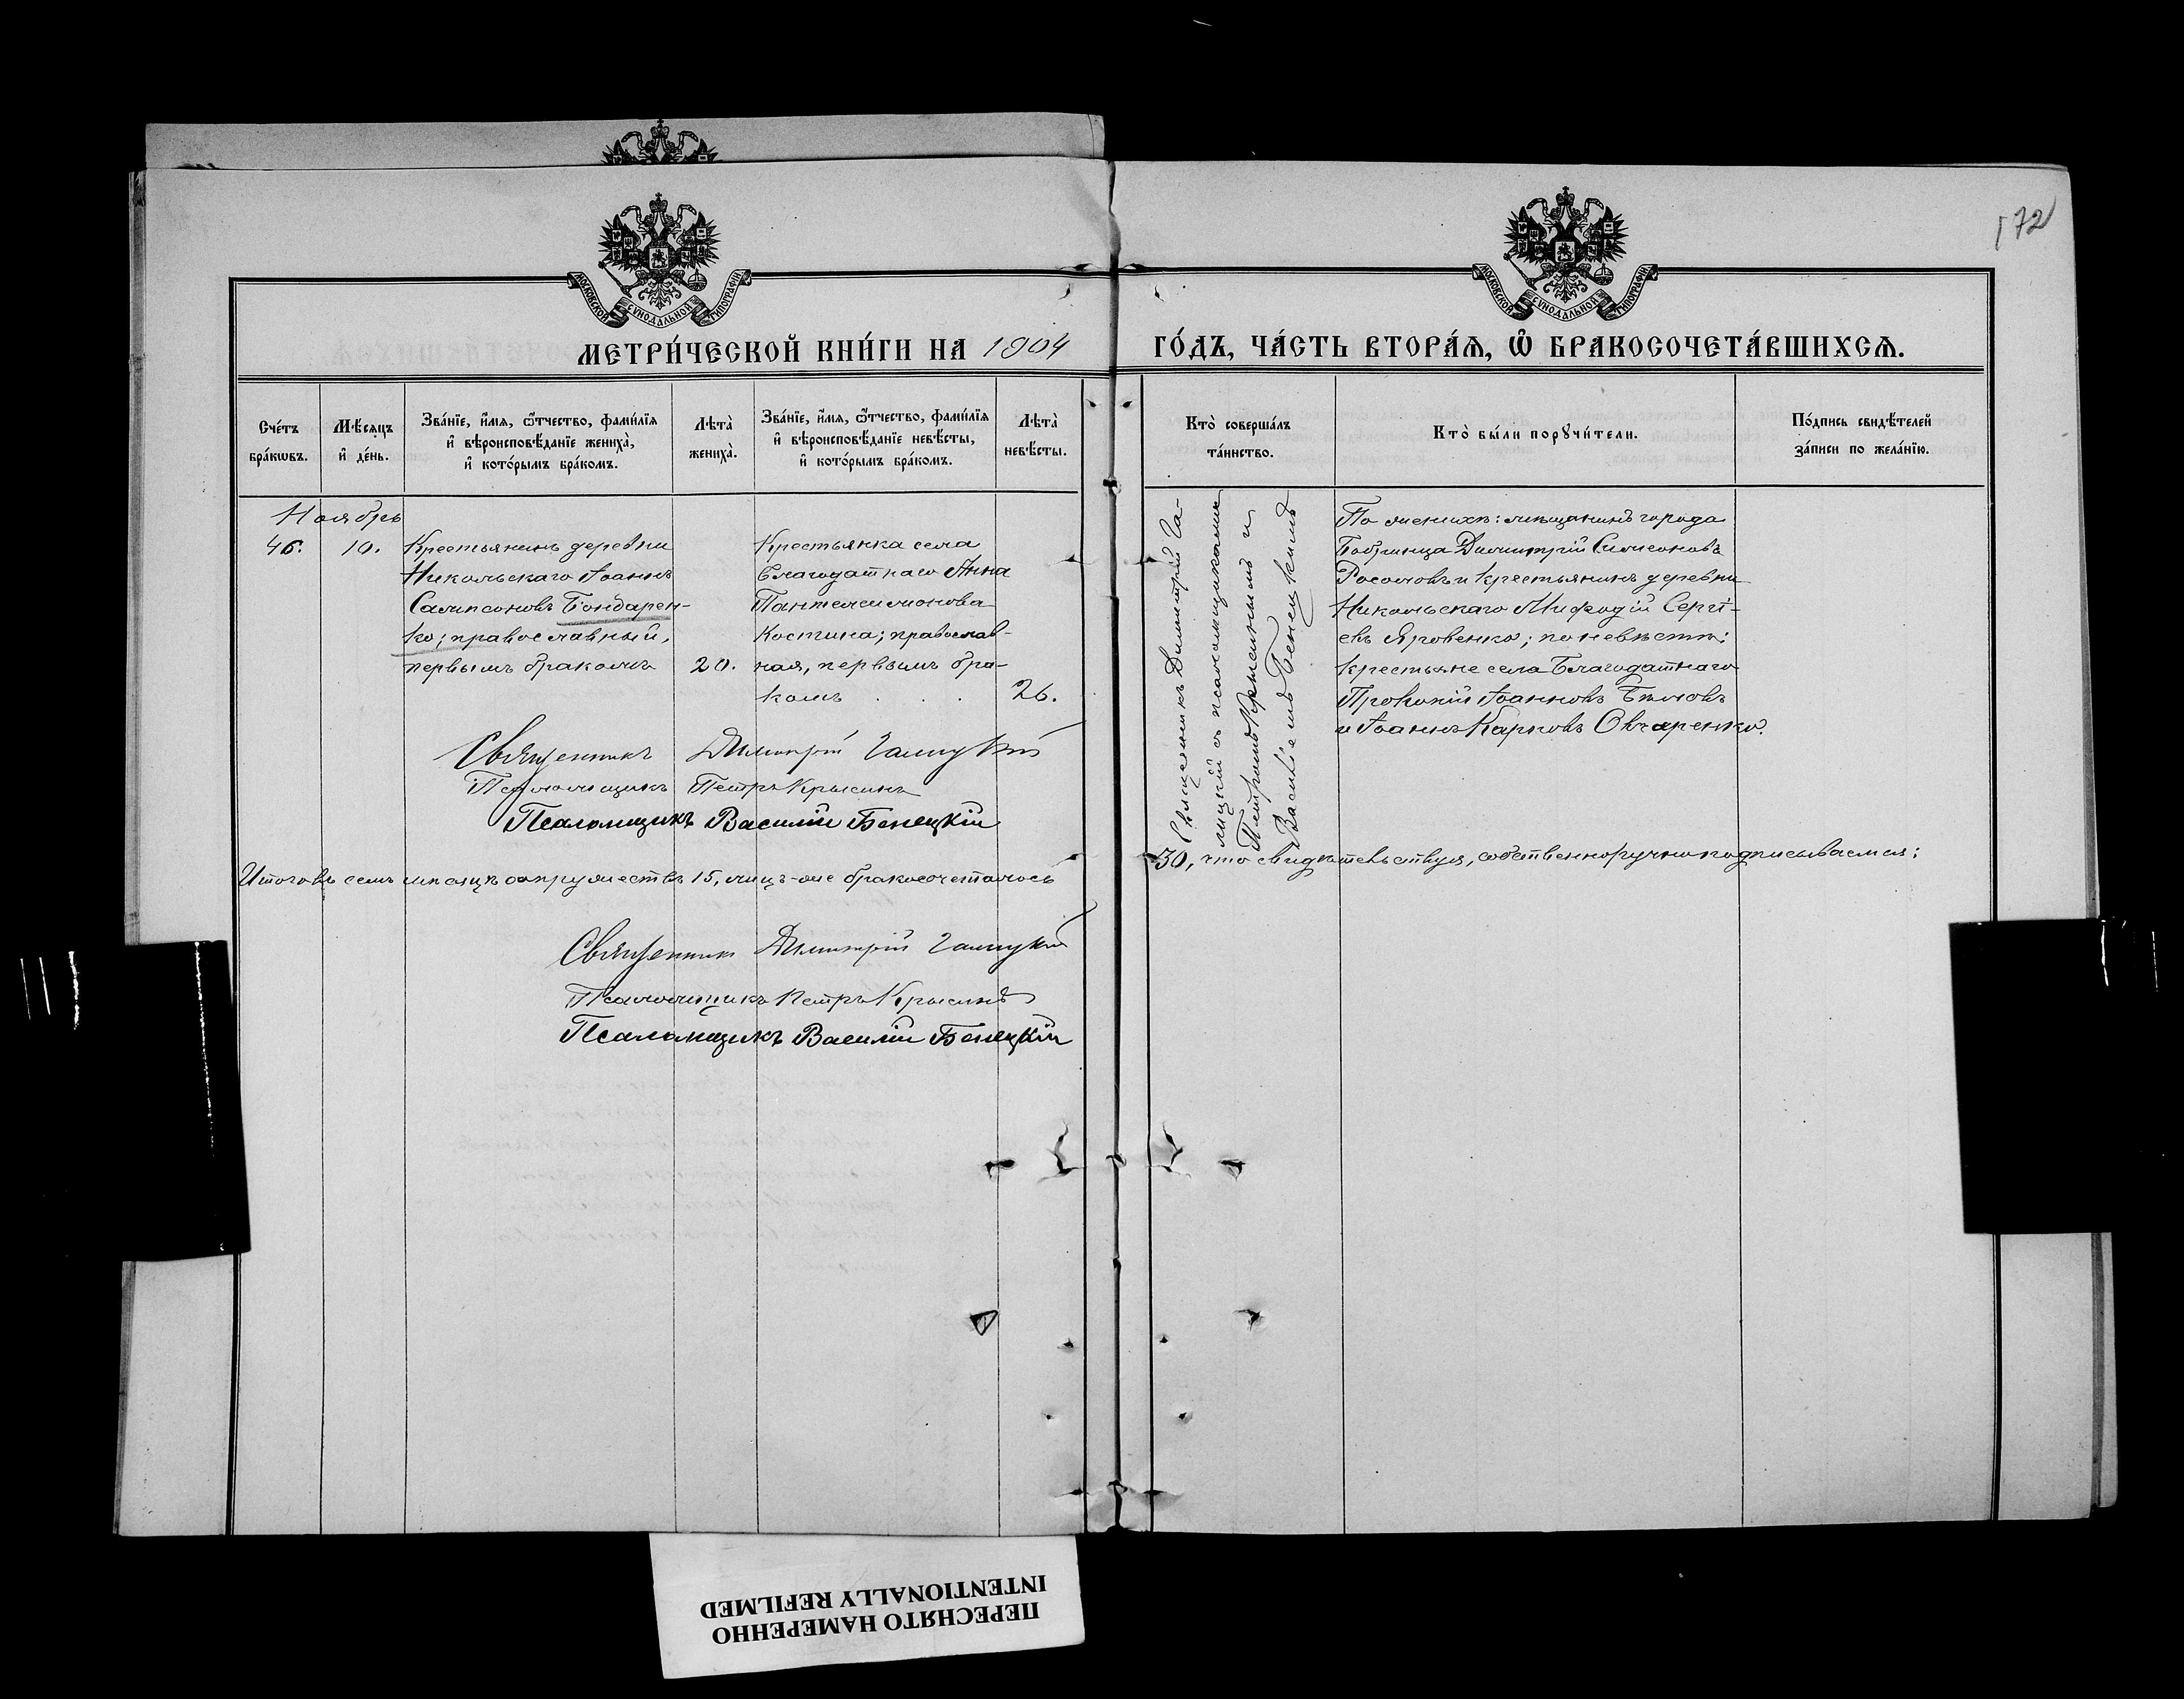 172
МОСКОВСКОЙ СУНОДАЛЬНОЙ ТИПОГРАФІИ
МОСКОВСКОЙ СУНОДАЛЬНОЙ ТИПОГРАФІИ
МЕТРИ́ЧЕСКОЙ КНИ́ГИ НА 1904 ГО́ДЪ, ЧА́СТЬ ВТОРА́Я, Ѽ БРАКОСОЧЕТА́ВШИХСЯ.
Сче́тъ
бра́кѡвъ.
Мѣ́сяцъ
и҆ де́нь.
Зва́нїе, и҆́мя, ѻ҆́тчество, фами́лїя
и҆ вѣроисповѣ́данїе жениха̀,
и҆ кото́рымъ бра́комъ.
Лѣта̀
жениха̀.
Зва́нїе, и҆́мя, ѻ҆́тчество, фами́лїя
и҆ вѣроисповѣ́данїе невѣ́сты,
и҆ кото́рымъ бра́комъ.
Лѣта̀
невѣ́сты.
Кто̀ соверша́лъ
та́инство.
Кто̀ бы́ли порꙋчи́тели.
По́дпись свидѣ́телей
за́писи по жела́нїю.
Ноябрь
46.
10.
Крестьянинъ деревни
Никольскаго Іоаннъ
Сампсоновъ Бондарен-
ко; православный,
первымъ бракомъ
20.
Крестьянка села
Благодатнаго Анна
Пантелеимонова
Костина; православ-
ная, первымъ бра-
комъ . . .
26.
Священникъ Димитрій Га-
лицкій съ псаломщиками
Петромъ Крысинымъ и
Василіемъ Бенецкимъ
По женихѣ: мѣщанинъ города
Бобринца Димитрій Симеоновъ
Росоловъ и крестьянинъ деревни
Никольскаго Мифодій Сергі-
евъ Яровенко; по невѣстѣ:
крестьяне села Благодатнаго
Прокопій Іоанновъ Бѣловъ
и Іоаннъ Карповъ Овчаренко.
Священникъ Димитрій Галицкій
Псаломщикъ Петръ Крысинъ
Псаломщикъ Василій Бенецкій
Итого въ семъ мѣсяцѣ супружествъ 15, лицъ-же бракосочеталось
30, что свидѣтельствуя, собственноручно подписываемся:
Священникъ Димитрій Галицкій
Псаломщикъ Петръ Крысинъ
Псаломщикъ Василій Бенецкій
ПЕРЕСНЯТО НАМЕРЕННО
INTENTIONALLY REFILMED